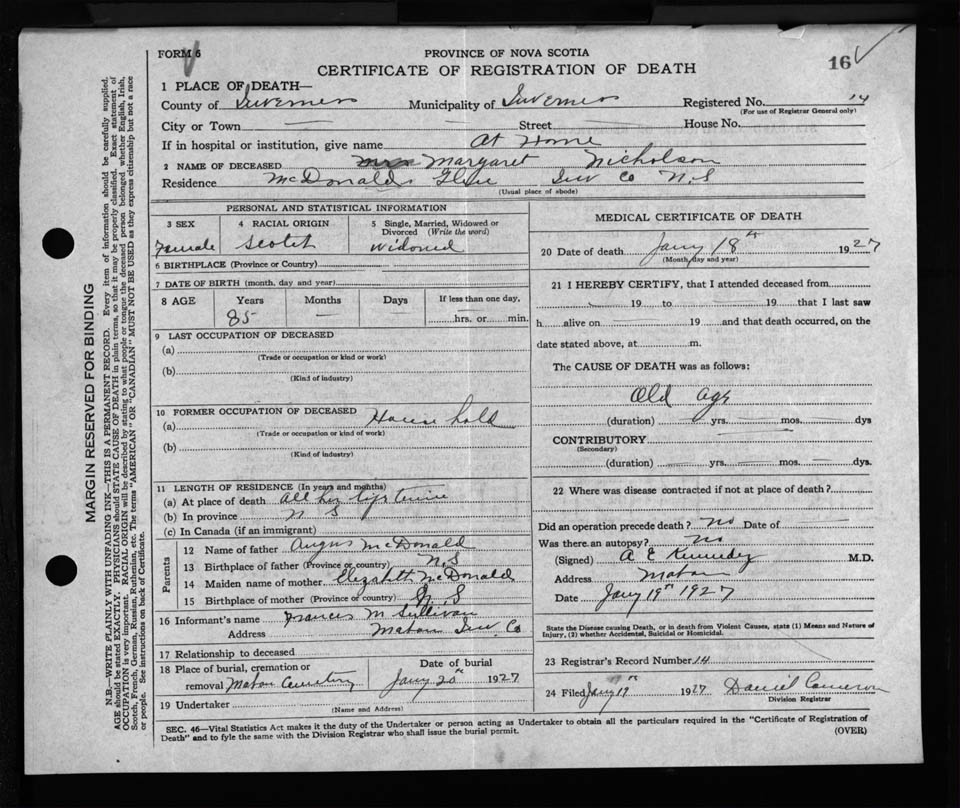 FORM 6
PROVINCE OF NOVA SCOTIA
CERTIFICATE OF REGISTRATION OF DEATH
16
1 PLACE OF DEATH—
County of Inverness Municipality of Inverness Registered No. 14
(For use of Registrar General only)
City or Town — Street — House No.
If in hospital or institution, give name At Home
2 NAME OF DECEASED Mrs Margaret Nicholson
Residence McDonalds Glen Inv Co N.S
(Usual place of abode)
PERSONAL AND STATISTICAL INFORMATION
3 SEX 4 RACIAL ORIGIN 5 Single, Married, Widowed or Divorced (Write the word)
Female Scotch Widowed
6 BIRTHPLACE (Province or Country)
7 DATE OF BIRTH (month, day and year)
8 AGE Years Months Days If less than one day,
85 — hrs. or min.
9 LAST OCCUPATION OF DECEASED
(a)
(Trade or occupation or kind or work)
(b)
(Kind of industry)
10 FORMER OCCUPATION OF DECEASED
(a) House hold
(Trade or occupation or kind of work)
(b)
(Kind of industry)
11 LENGTH OF RESIDENCE (In years and months)
(a) At place of death All her life time
(b) In province N S
(c) In Canada (if an immigrant)
Parents
12 Name of father Angus McDonald
13 Birthplace of father (Province or country) N.S
14 Maiden name of mother Elizabeth McDonald
15 Birthplace of mother (Province or country) N. S
16 Informant's name Frances M Sullivan
Address Mabou Inv. Co
17 Relationship to deceased
18 Place of burial, cremation or Date of burial
removal Mabou Cemetery Jany 20th 1927
19 Undertaker
(Name and Address)
MEDICAL CERTIFICATE OF DEATH
20 Date of death Jany 18th 1927
(Month, day and year)
21 I HEREBY CERTIFY, that I attended deceased from
19 to 19 that I last saw
h alive on 19 and that death occurred, on the
date stated above, at m.
The CAUSE OF DEATH was as follows:
Old age
(duration) yrs. mos. dys
CONTRIBUTORY
(Secondary)
(duration) yrs. mos. dys.
22 Where was disease contracted if not at place of death?
Did an operation precede death? no Date of —
Was there an autopsy? no
(Signed) A E Kennedy M.D.
Address Mabou
Date Jany 19th 1927
State the Disease causing Death, or in death from Violent Causes, state (1) Means and Nature of
Injury, (2) whether Accidental, Suicidal or Homicidal.
23 Registrar's Record Number 14
24 Filed Jany 19th 1927 Daniel Cameron
Division Registrar
SEC. 46—Vital Statistics Act makes it the duty of the Undertaker or person acting as Undertaker to obtain all the particulars required in the "Certificate of Registration of
Death" and to fyle the same with the Division Registrar who shall issue the burial permit.
(OVER)
MARGIN RESERVED FOR BINDING
N.B.—WRITE PLAINLY WITH UNFADING INK—THIS IS A PERMANENT RECORD. Every item of information should be carefully supplied.
AGE should be stated EXACTLY. PHYSICIANS should STATE CAUSE OF DEATH in plain terms, so that it may be properly classified. Exact statement of
OCCUPATION is very important. RACIAL ORIGIN will be described by stating to what people or tongue the deceased person belonged whether English, Irish,
Scotch, French, German, Russian, Ruthenian, etc. The terms "AMERICAN" OR "CANADIAN" MUST NOT BE USED as they express citizenship but not a race
or people. See instructions on back of Certificate.